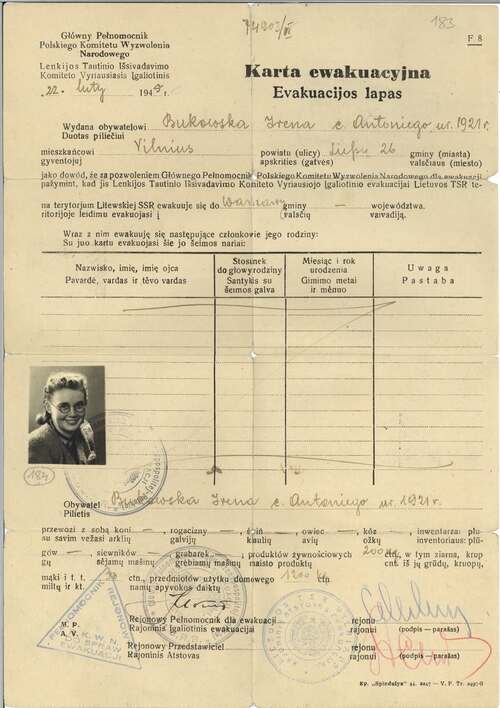 183
F 8
Główny Pełnomocnik
Polskiego Komitetu Wyzwolenia
Narodowego
Lenkijos Tautinio Išsivadavimo
Komiteto Vyriausiasis Įgaliotinis
22. luty 194
Karta ewakuacyjna
Evakuacijos lapas
Wydana obywatelowi Bukowska Irena c. Antoniego ur. 1921 r.
Duotas piliečiui
mieszkańcowi Vilnius powiatu (ulicy) Liepų 26 gminy (miasta)
gyventojej apskrities (gatvės) valsčiaus (miesto)
jako dowód, że za pozwoleniem Głównego Pełnomocnik Polskiego Komitetu Wyzwolenia Narodowego dla ewakuacji
pažymint, kad jis Lenkijos Tautinio Išsivadavimo Komiteto Vyriausiojo Įgaliotinio evakuacijai Lietuvos TSR te-
na terytorjum Litewskiej SSR ewakuuje się do Warszawy gminy — województwa.
ritorijoje leidimu evakuojasi į valsčių vaivadiją.
Wraz z nim ewakuuję się następujące członkowie jego rodziny:
Su juo kartu evakuojasi šie jo šeimos nariai:
Nazwisko, imię, imię ojca
Pavardė, vardas ir tėvo vardas
Stosunek
do głowy rodziny
Santykis su
šeimos galva
Miesiąc i rok
urodzenia
Gimimo metai
ir mėnuo
Uwaga
Pastaba
184
Obywatel Bukowska Irena c. Antoniego ur. 1921 r.
Pilietis
przewozi z sobą koni —, rogacizny —, świń —, owiec —, kóz —, inwentarza: płu-
su savim vežasi arklių galvijų kiaulių avių ožkų inventoriaus: plū-
gów —, siewników —, grabarek —, produktów żywnościowych 200 ctn, w tym ziarna, krup
gų sėjamų mašinų grėbiamų mašinų maisto produktų cnt. iš jų grūdų, kruopų,
mąki i t. t. ctn, przedmiotów użytku domowego 1200
miltų ir kt. cnt. namų apyvokos daiktų
M. P.
A. V.
Rejonowy Pełnomocnik dla ewakuacji rejonu
Rajoninis Įgaliotinis evakuacijai rajonui (podpis — parašas)
Rejonowy Przedstawiciel rejonu
Rajoninis Atstovas rajonui (podpis — parašas)
PEŁNOMOCNIK REJONOWY
P. K. W. N.
SPRAW
EWAKUACJI
Sp. „Spindulys“ — V. P. Tr.